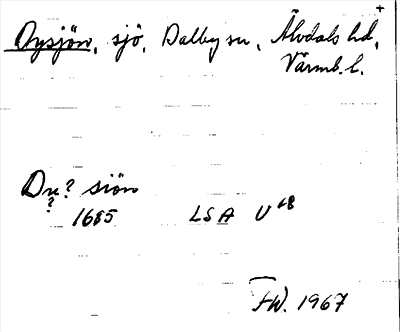 +
Dysjön, sjö, Dalby sn, Älvdals hd,
Värml. l.
Du? siön
?
1685 LSA U 68
FW. 1967